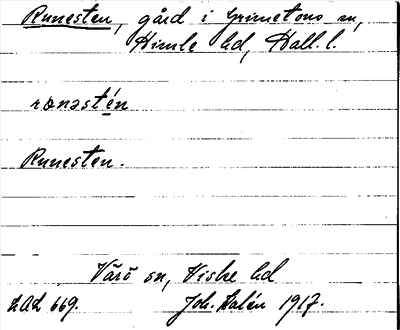 Runesten, gård i Grimetons sn,
Himle hd, Hall. l.
rᴜnəstén
Runesten.
Värö sn, Viske hd
LAL 669. Joh. Kalén 1917.